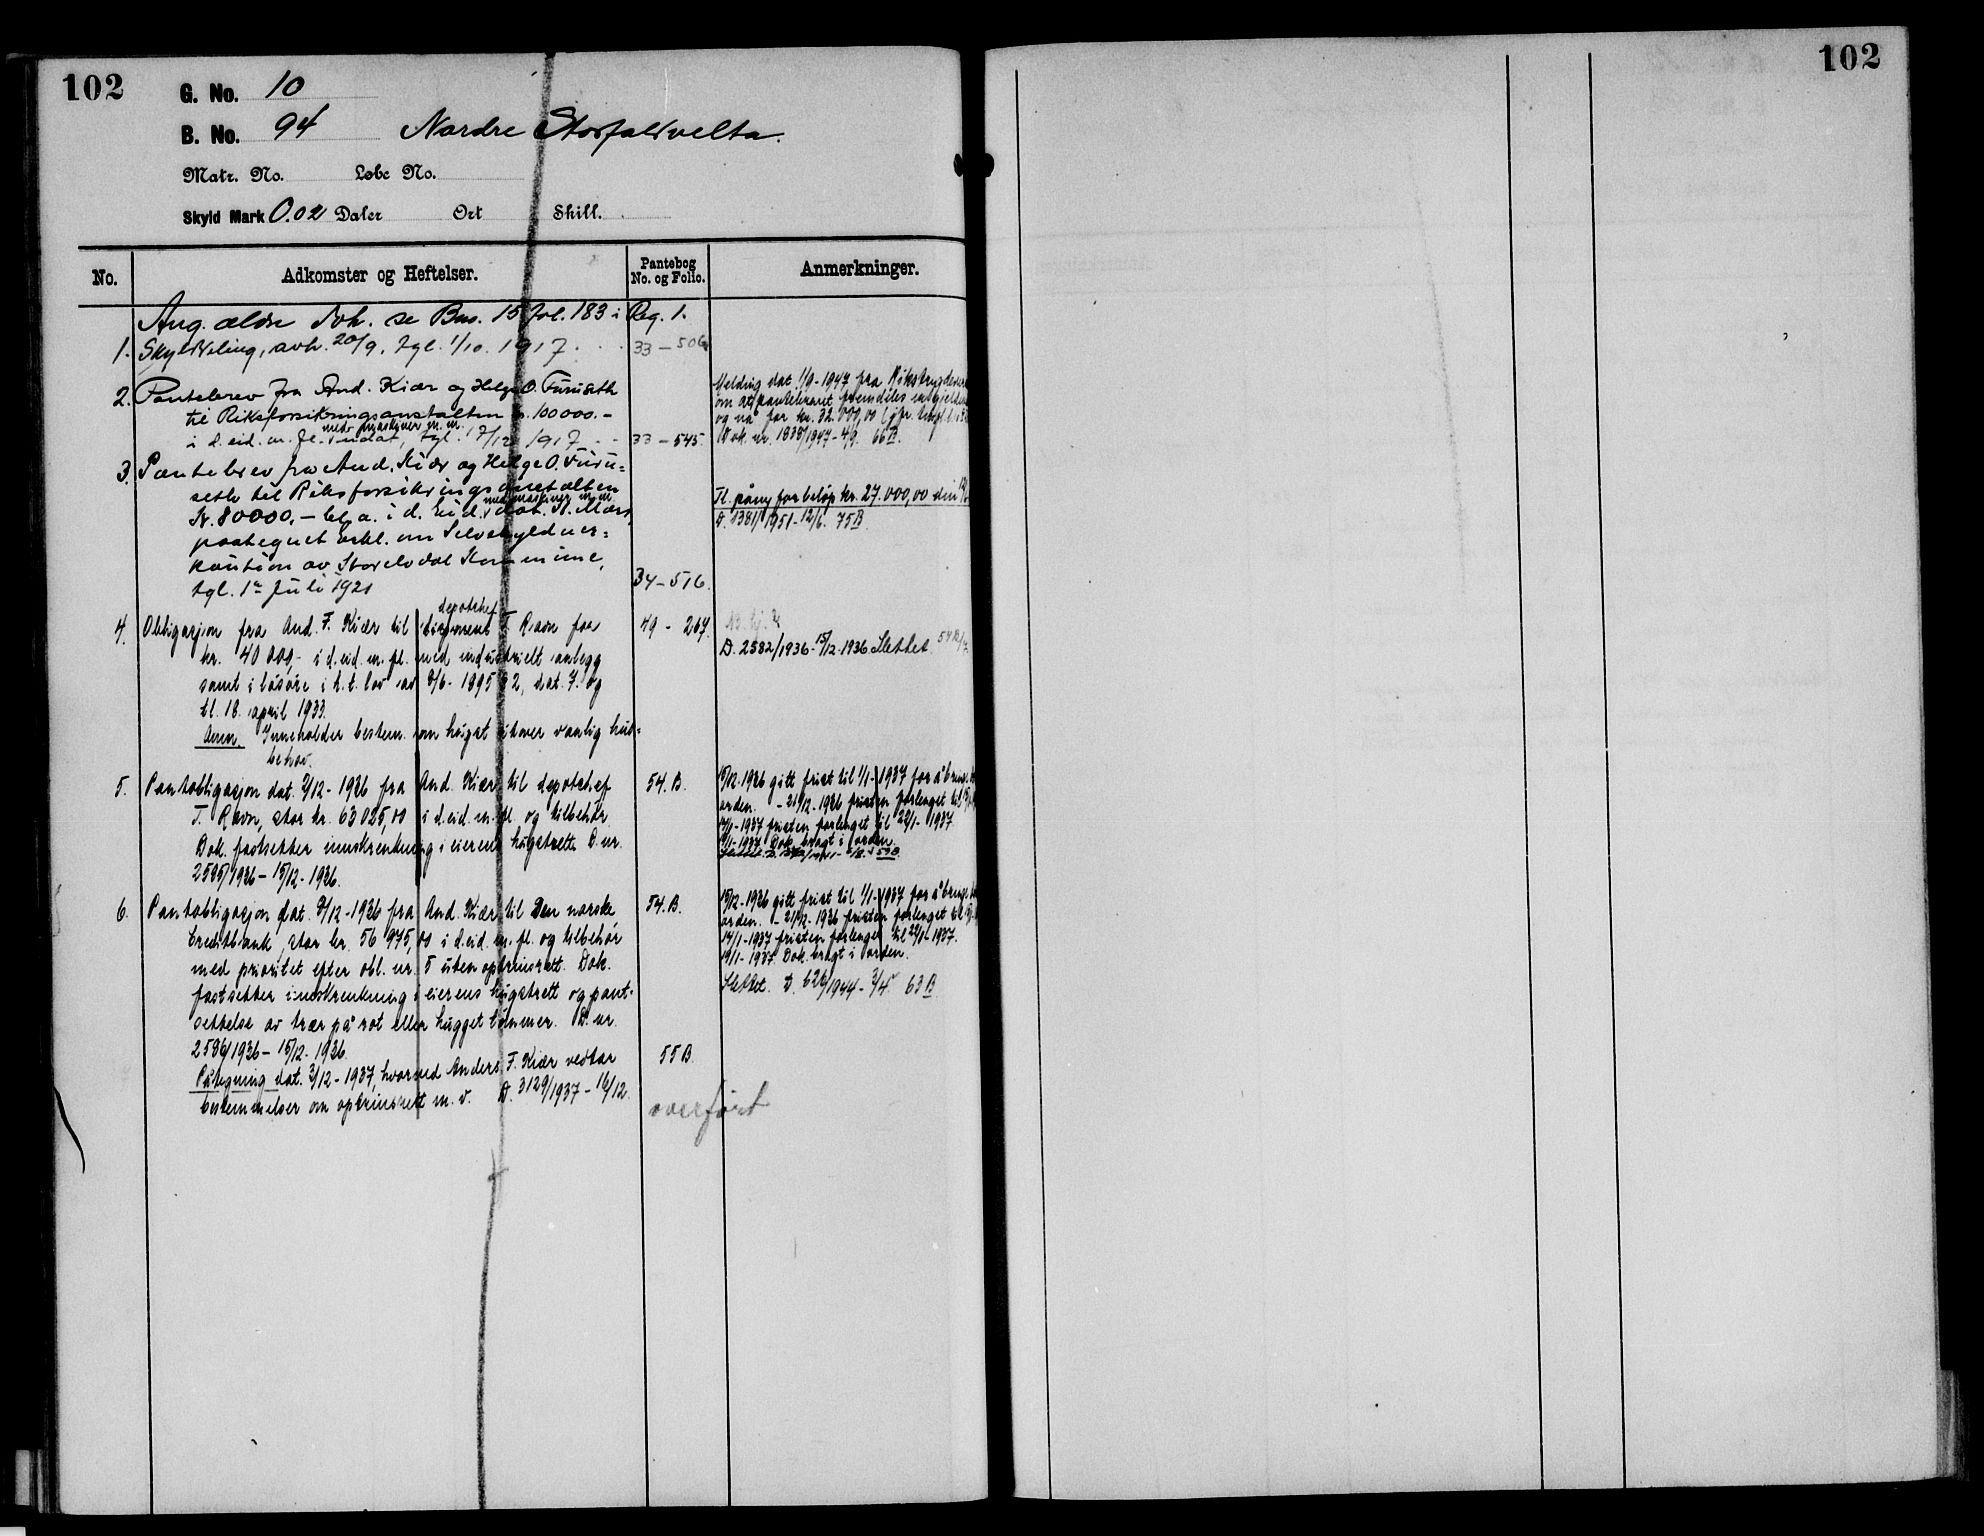 102
102
G. No. 10
B. No. 94 Nordre Storfaldvelta.
Matr. No. Løbe No.
Skyld Mark 0.02 Daler Ort Skill.
No. Adkomster og Heftelser. Pantebog No. og Folio. Anmerkninger.
Ang. ældre dok. se Bno. 15 fol. 183 i Reg. 1.
1. Skylddeling, avh. 20/9, tgl. 1/10. 1917 33 – 506
2. Pantebrev fra And. Kiær og Helge O. Furuseth
til Riksforsikringsanstalten kr. 100000.–
med maskiner m.m.
i d. eid. m. fl. dat, tgl. 17/12 1917 33 – 545.
Melding dat. 1/9-1947 fra Rikstrygdeverket
om at pantekravet fremdeles er
og nå for kr. 32.000,00
Dok. nr. 1838/1947 – 4/9. 66 B.
3. Pantebrev fra And. Kiær og Helge O. Furu=
seth til Riksforsikringsanstalten
med maskiner m.m.
Kr. 80000.– bl. a. i d. Eid. dat. Mars,
paategnet erkl. om Selvskyldner=
kaution av Storelvdal Kommune,
tgl. 1ste Juli 1921 34 – 516.
Tl. påny for beløp kr. 27.000,00 den 12/6
D. 1381/1951 – 12/6. 75 B.
4. Obligasjon fra And. F. Kiær til depotchef
T. Ravn for 49 – 267.
kr. 40 000,- i d. eid. m. fl. med industrielt anlegg
samt i løsøre i h. t. lov av 8/6 - 1895 § 2, dat. 7. og
tl. 18. april 1933.
Anm. Inneholder bestem. om hugst utover vanlig hus=
behov.
D. 2582/1936 - 15/12 - 1936 Slettes 54 B
5. Pantobligasjon dat. 3/12 - 1936 fra And. Kiær til depotchef 54. B.
T. Ravn, stor kr. 63 025,00 i d. eid. m. fl. og tilbehør
Dok. fastsetter innskrenkning i eierens hugstrett. D. nr.
2585/1936 – 15/12 - 1936.
15/12 - 1936 gitt frist til 1/1 - 1937 for å bringe dok.
orden. – 21/12 - 1936 fristen forlenget til
14/1 - 1937 fristen forlenget til 22/1 - 1937.
19/1 - 1937 Dok. bragt i orden.
6. Pantobligasjon dat. 3/12 - 1936 fra And. Kiær til Den norske 54. B.
Creditbank, stor kr. 56 975,00 i d. eid. m. fl. og tilbehör
med prioritet efter obl. nr. 5 uten optrinsrett. Dok.
fastsetter innskrenkning i eierens hugstrett og pant-
settelse av trær på rot eller hugget tømmer. D. nr.
2586/1936 – 15/12 - 1936.
15/12 - 1936 gitt frist til 1/1 - 1937 for å bringe dok.
orden. – 21/12 - 1936 fristen forlenget til
14/1 - 1937 fristen forlenget til 22/1 - 1937.
19/1 - 1937 Dok. bragt i orden.
Slettet. D. 626/1944 – 3/4 63 B
Påtegning dat. 3/12 - 1937, hvorved Anders F. Kiær vedtar 55 B.
bestemmelser om optrinsrett m. v. D. 3129/1937 – 16/12.
overført